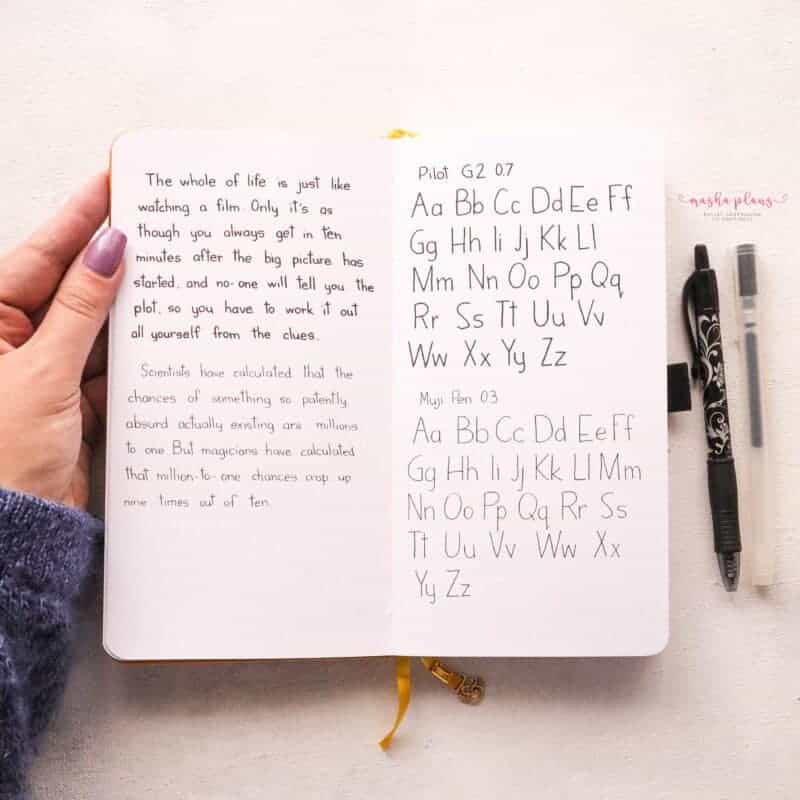 The whole of life is just like
watching a film. Only it's as
though you always get in ten
minutes after the big picture has
started, and no-one will tell you the
plot, so you have to work it out
all yourself from the clues.
Scientists have calculated that the
chances of something so patently
absurd actually existing are millions
to one. But magicians have calculated
that million-to-one chances crop up
nine times out of ten.
Pilot G2 0.7
Aa Bb Cc Dd Ee Ff
Gg Hh Ii Jj Kk Ll
Mm Nn Oo Pp Qq
Rr Ss Tt Uu Vv
Ww Xx Yy Zz
Muji Pen 03
Aa Bb Cc Dd Ee Ff
Gg Hh Ii Jj Kk Ll Mm
Nn Oo Pp Qq Rr Ss
Tt Uu Vv Ww Xx
Yy Zz
masha plans